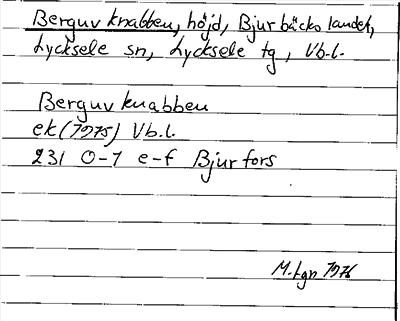 Berguvknabben, höjd, Bjurbäckslandet,
Lycksele sn, Lycksele tg, Vb.l.
Berguvknabben
ek (1975) Vb.l.
231 0-1 e-f Bjurfors
M. Lgn 1976